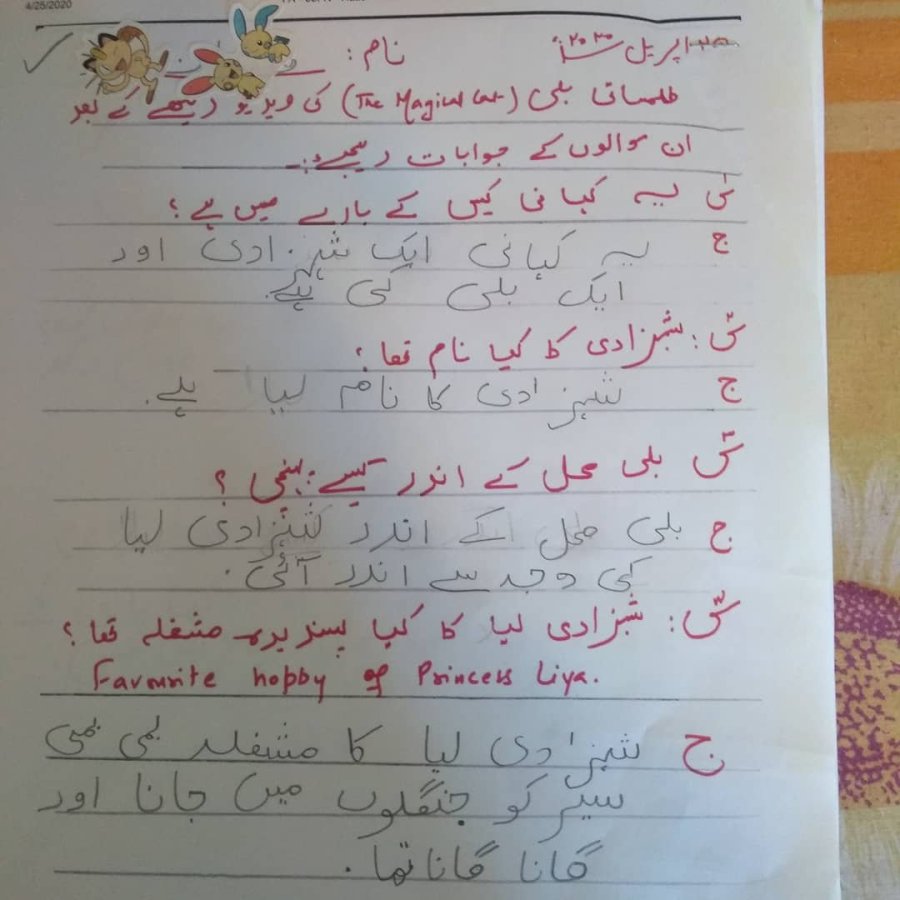 4/25/2020
اپریل ۲۰۲۰ نام:
طلسماتی بلی (The Magical Cat) کی ویڈیو دیکھنے کے بعد
ان سوالوں کے جوابات دیجیے:۔
س یہ کہانی کس کے بارے میں ہے؟
ج یہ کہانی ایک شہزادی اور
ایک بلی کی ہے۔
س: شہزادی کا کیا نام تھا؟
ج شہزادی کا نام لیا ہے۔
س بلی محل کے اندر کیسے پہنچی؟
ج بلی محل کے اندر شہزادی لیا
کی وجہ سے اندر آئی۔
س: شہزادی لیا کا کیا پسندیدہ مشغلہ تھا؟
Favourite hobby of Princess Liya.
ج شہزادی لیا کا مشغلہ لمبی لمبی
سیر کو جنگلوں میں جانا اور
گانا گانا تھا۔